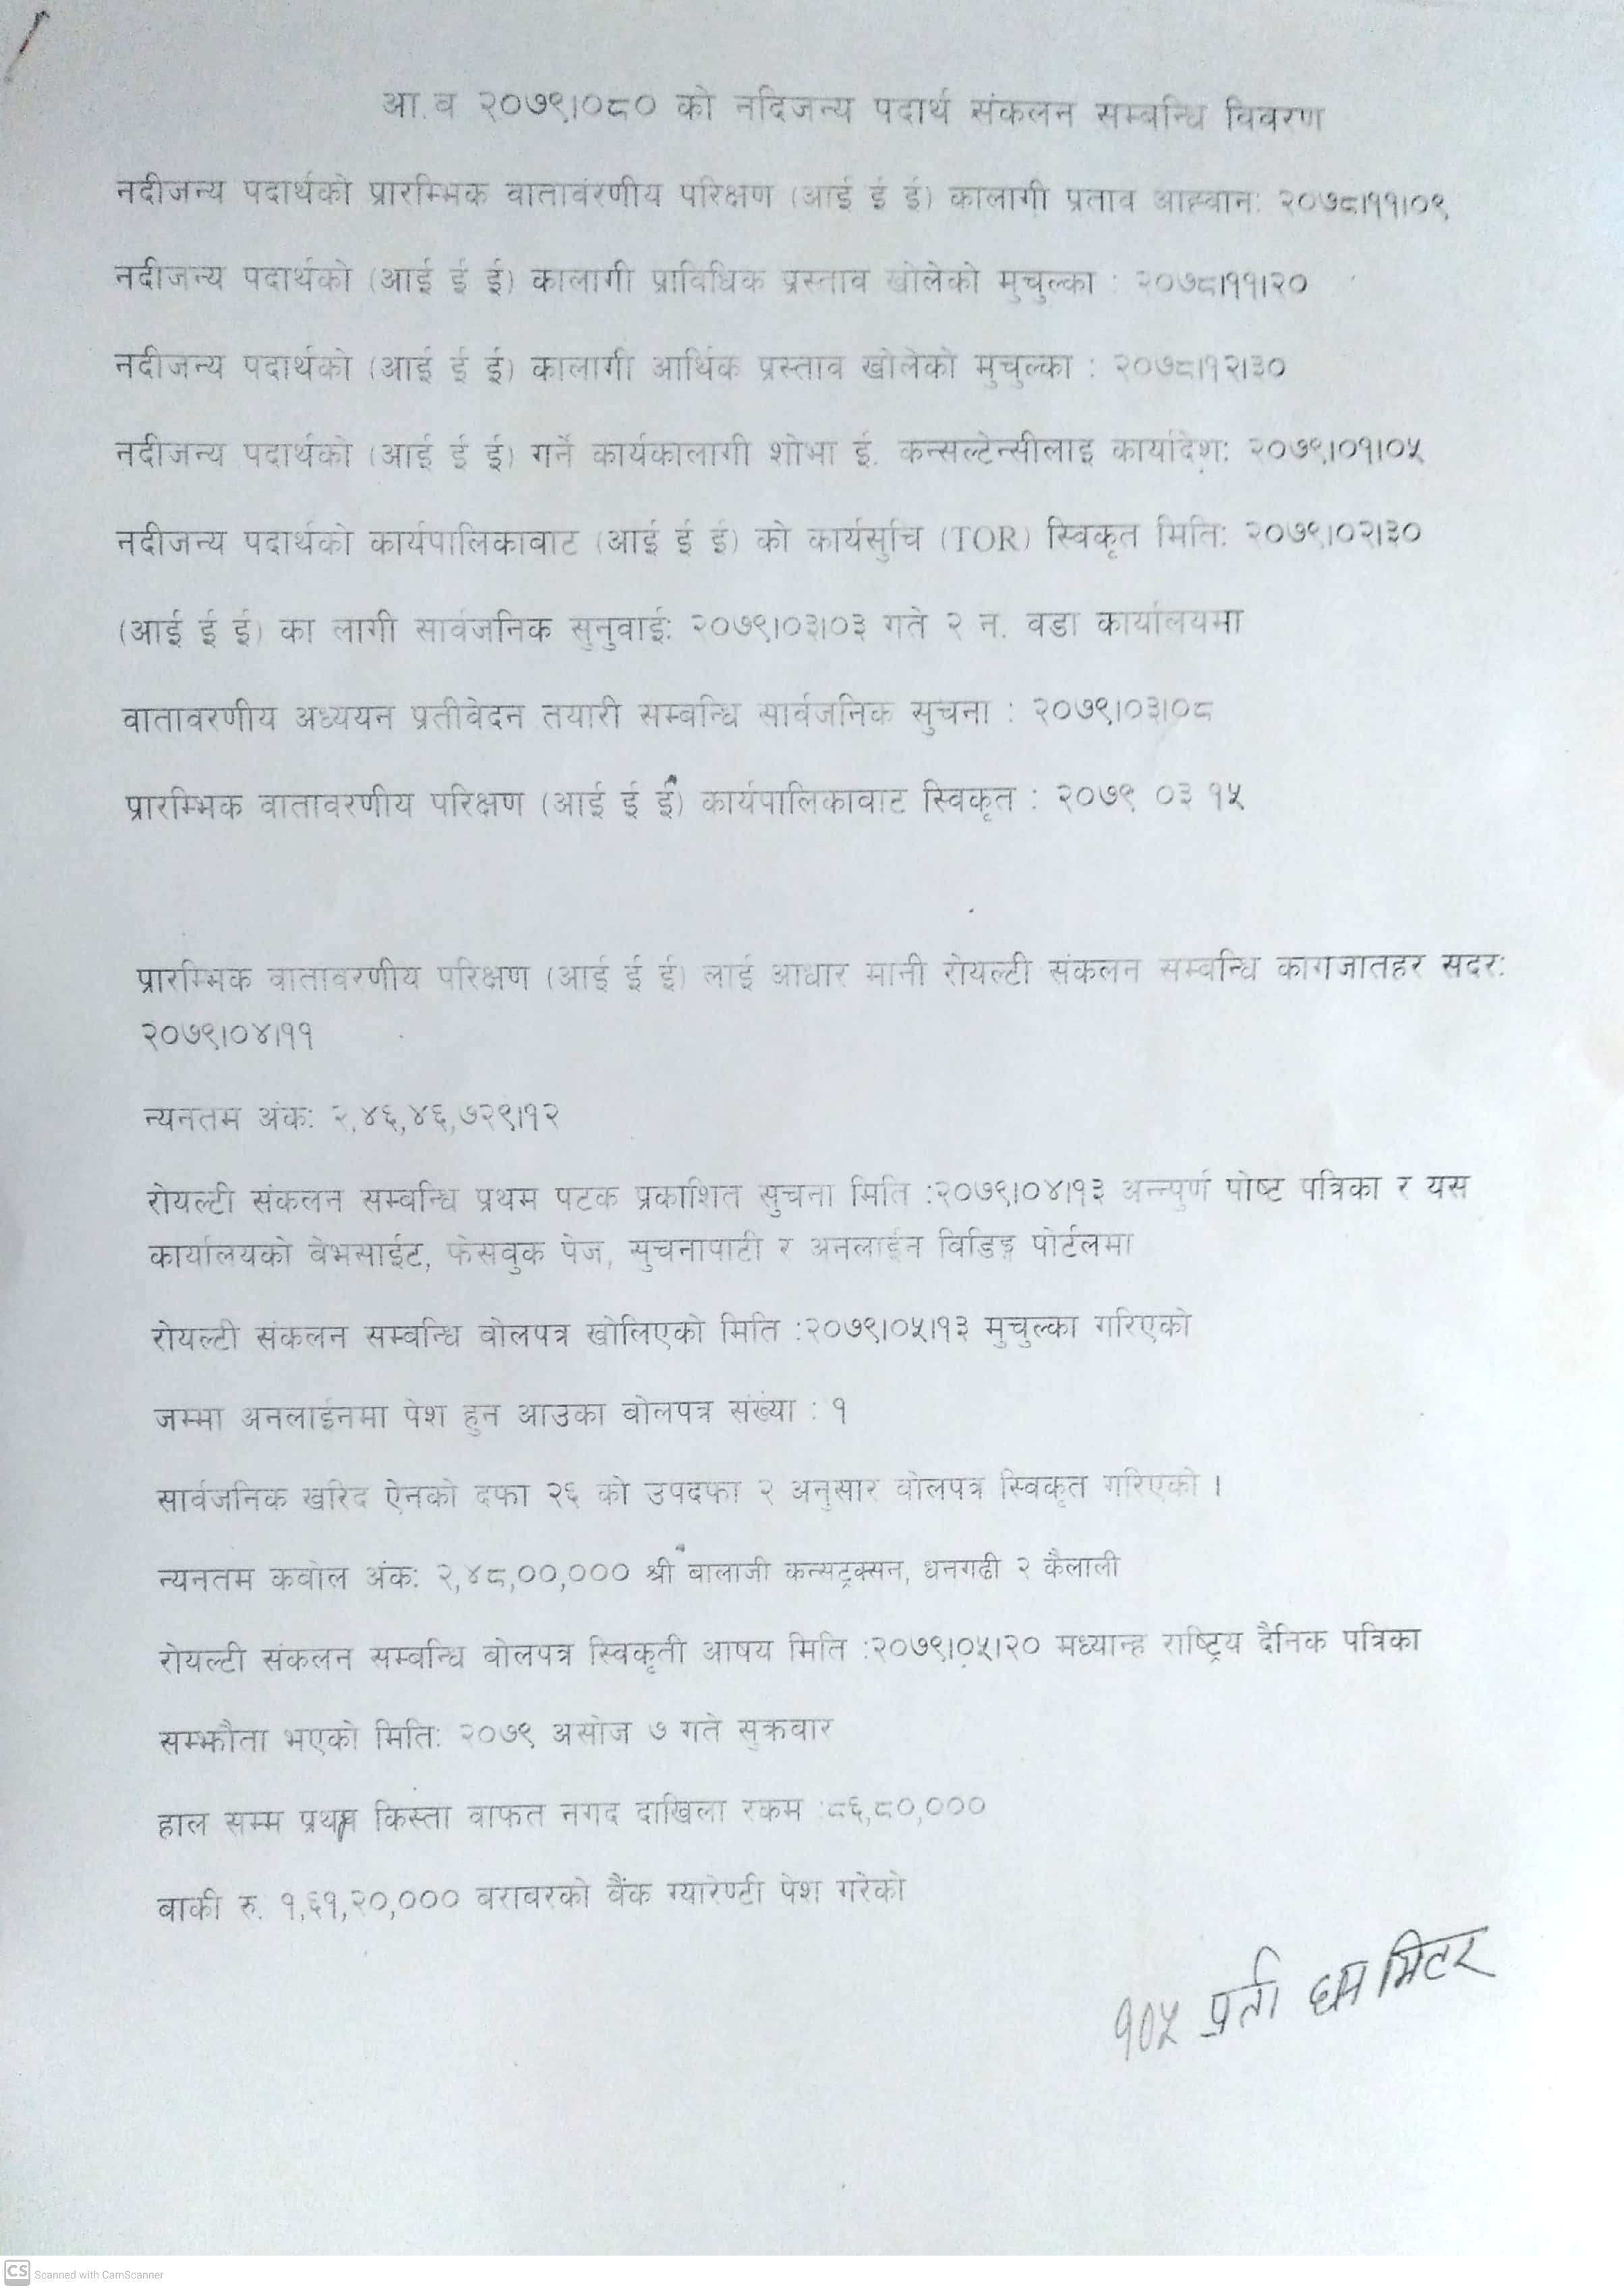 आ.व २०७९।०८० को नदिजन्य पदार्थ संकलन सम्बन्धि विवरण
नदीजन्य पदार्थको प्रारम्भिक वातावंरणीय परिक्षण (आई ई ई) कालागी प्रताव आह्वान: २०७८।११।०९
नदीजन्य पदार्थको (आई ई ई) कालागी प्राविधिक प्रस्ताव खोलेको मुचुल्का : २०७८।११।२०
नदीजन्य पदार्थको (आई ई ई) कालागी आर्थिक प्रस्ताव खोलेको मुचुल्का : २०७८।१२।३०
नदीजन्य पदार्थको (आई ई ई) गर्ने कार्यकालागी शोभा ई. कन्सल्टेन्सीलाइ कार्यादेश: २०७९।०१।०५
नदीजन्य पदार्थको कार्यपालिकावाट (आई ई ई) को कार्यसुचि (TOR) स्विकृत मिति: २०७९।०२।३०
(आई ई ई) का लागी सार्वजनिक सुनुवाई: २०७९।०३।०३ गते २ न. वडा कार्यालयमा
वातावरणीय अध्ययन प्रतीवेदन तयारी सम्बन्धि सार्वजनिक सुचना : २०७९।०३।०८
प्रारम्भिक वातावरणीय परिक्षण (आई ई ई) कार्यपालिकावाट स्विकृत : २०७९ ०३ १५
प्रारम्भिक वातावरणीय परिक्षण (आई ई ई) लाई आधार मानी रोयल्टी संकलन सम्वन्धि कागजातहर सदर:
२०७९।०४।११
न्यनतम अंक: २,४६,४६,७२९।१२
रोयल्टी संकलन सम्वन्धि प्रथम पटक प्रकाशित सुचना मिति :२०७९।०४।१३ अन्न्पुर्ण पोष्ट पत्रिका र यस
कार्यालयको वेभसाईट, फेसवुक पेज, सुचनापाटी र अनलाईन विडिङ्ग पोर्टलमा
रोयल्टी संकलन सम्वन्धि बोलपत्र खोलिएको मिति :२०७९।०५।१३ मुचुल्का गरिएको
जम्मा अनलाईनमा पेश हुन आउका बोलपत्र संख्या : १
सार्वजनिक खरिद ऐनको दफा २६ को उपदफा २ अनुसार वोलपत्र स्विकृत गरिएको ।
न्यनतम कवोल अंक: २,४८,००,००० श्री बालाजी कन्सट्रक्सन, धनगढी २ कैलाली
रोयल्टी संकलन सम्वन्धि बोलपत्र स्विकृती आषय मिति :२०७९।०५।२० मध्यान्ह राष्ट्रिय दैनिक पत्रिका
सम्झौता भएको मिति: २०७९ असोज ७ गते सुक्रवार
हाल सम्म प्रथम किस्ता वाफत नगद दाखिला रकम :८६,८०,०००
बाकी रु. १,६१,२०,००० वरावरको बैंक ग्यारेण्टी पेश गरेको
१०५ प्रती घन मिटर
CS Scanned with CamScanner